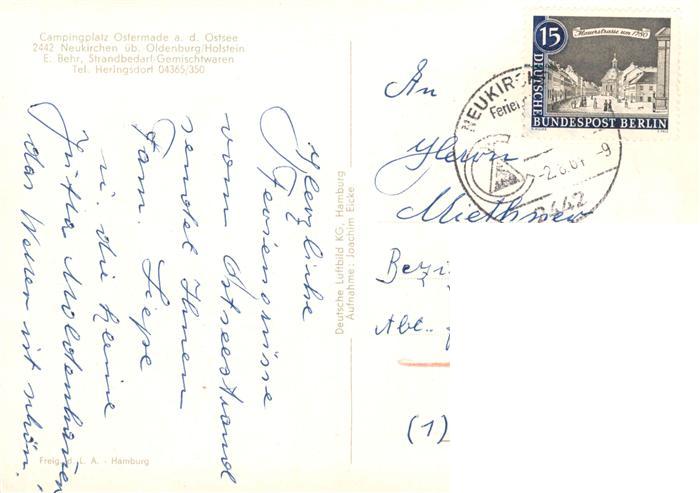 Campingplatz Ostermade a. d. Ostsee
2442 Neukirchen üb. Oldenburg/Holstein
E. Behr, Strandbedarf-Gemischtwaren
Tel. Heringsdorf 04365/350
Herzliche
Feriengrüsse
vom Ostseestrand
sendet Ihnen
Fam. Liepe
u. die kleine
Jutta
das Wetter ist schön.
Freig. d. L. A. - Hamburg
Deutsche Luftbild KG, Hamburg
Aufnahme: Joachim Eicke
15
Mauerstrasse um 1780
DEUTSCHE
BUNDESPOST BERLIN
NEUKIRCH
Ferien
-2.8.64 -9
2442
An
Herrn
Bezi
Abt.
(1)